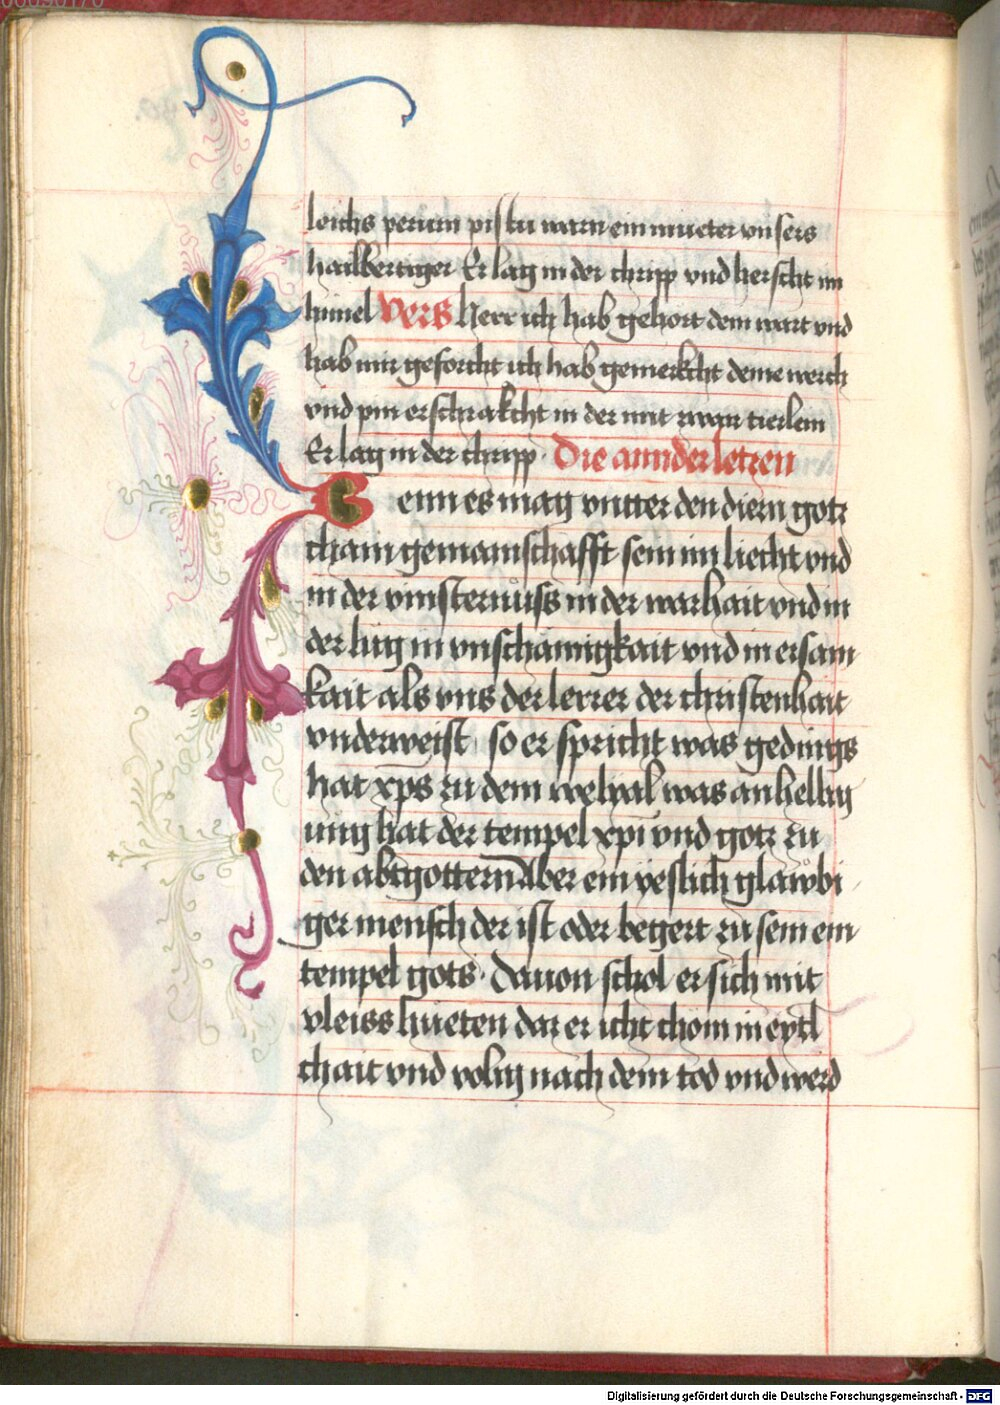 leichs perum pistu warn ein mueter vnsers
hailbertiger Er lag in der chripp vnd herscht im
himel Vers Herr ich hab gehort dein wart vnd
hab mir geforcht ich hab gemerkcht deine werch
vnd pin erschrakcht in der mit zwair tierlein
Er lag in der chripp · Die annder letzen
Wenn es mag vntter den diern gotz
cham gemainschafft sein im liecht vnd
in der vinsternuss in der warhait vnd in
der lug in vnschamigkait vnd in ersam
kait als vns der lerrer der christenhait
vnderweist so er spricht was gedings
hat xps zu dem welyal was anhellig
ung hat der tempel xpi vnd gotz zu
den abtgottern Aber ein yeslich glawbi
ger mensch der ist oder begert zu sein ein
tempel gots · dauon schol er sich mit
vleiss hueten daz er icht chom in eytl
chait vnd volig nach dem tod vnd werd
Digitalisierung gefördert durch die Deutsche Forschungsgemeinschaft - DFG